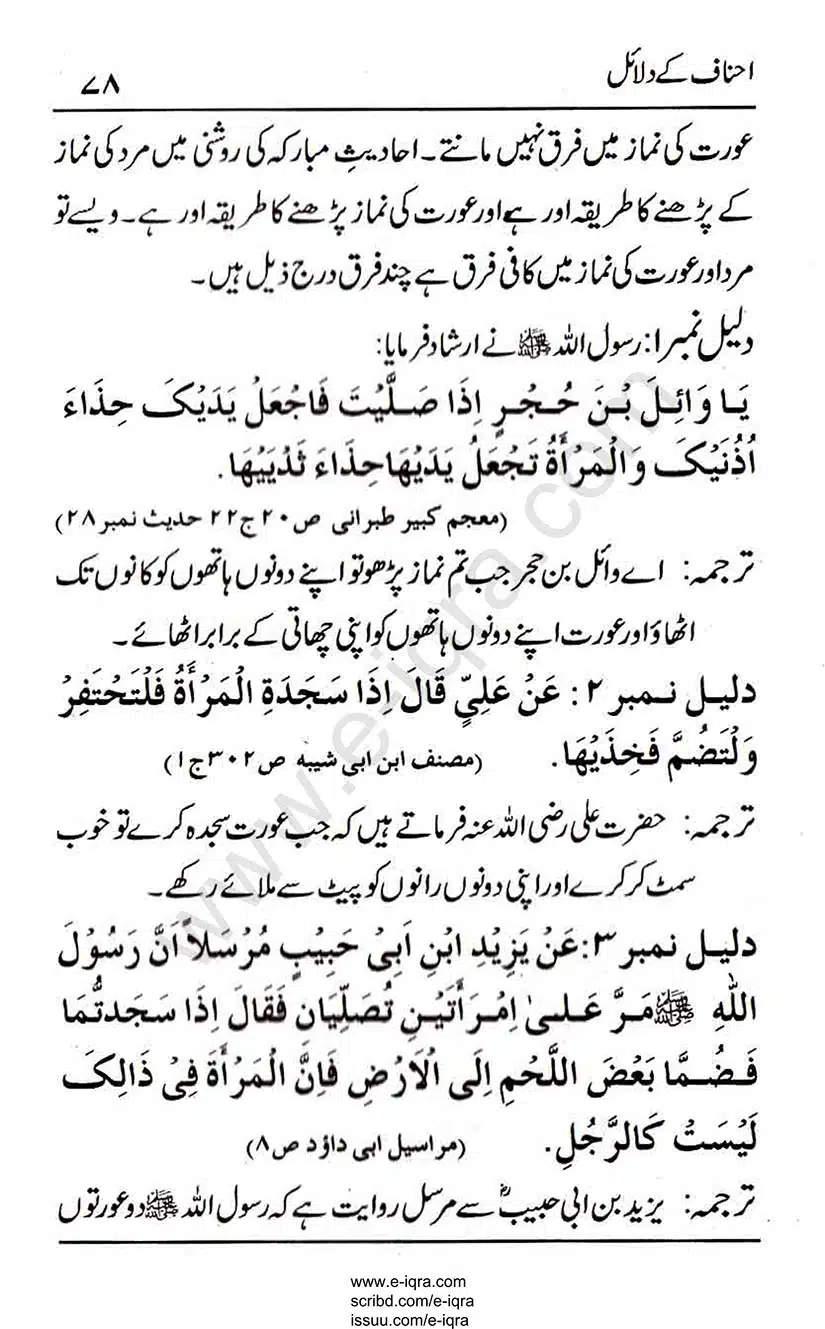 احناف کے دلائل ۷۸
عورت کی نماز میں فرق نہیں مانتے۔ احادیثِ مبارکہ کی روشنی میں مرد کی نماز
کے پڑھنے کا طریقہ اور ہے اور عورت کی نماز پڑھنے کا طریقہ اور ہے۔ ویسے تو
مرد اور عورت کی نماز میں کافی فرق ہے چند فرق درج ذیل ہیں۔
دلیل نمبر ۱: رسول اللہ ﷺ نے ارشاد فرمایا:
یَا وَائِلَ بْنَ حُجْرٍ اِذَا صَلَّیْتَ فَاجْعَلْ یَدَیْکَ حِذَاءَ
اُذُنَیْکَ وَالْمَرْأَۃُ تَجْعَلُ یَدَیْهَا حِذَاءَ ثَدْیَیْهَا.
(معجم کبیر طبرانی ص۲۰ ج۲۲ حدیث نمبر ۲۸)
ترجمہ: اے وائل بن حجر جب تم نماز پڑھو تو اپنے دونوں ہاتھوں کو کانوں تک
اٹھاؤ اور عورت اپنے دونوں ہاتھوں کو اپنی چھاتی کے برابر اٹھائے۔
دلیل نمبر ۲: عَنْ عَلِیٍّ قَالَ اِذَا سَجَدَۃِ الْمَرْأَۃُ فَلْتَحْتَفِرْ
وَلْتَضُمَّ فَخِذَیْهَا. (مصنف ابن ابی شیبه ص۳۰۲ ج۱)
ترجمہ: حضرت علی رضی اللہ عنہ فرماتے ہیں کہ جب عورت سجدہ کرے تو خوب
سمٹ کر کرے اور اپنی دونوں رانوں کو پیٹ سے ملائے رکھے۔
دلیل نمبر ۳: عَنْ یَزِیْدِ ابْنِ اَبِیْ حَبِیْبٍ مُرْسَلاً اَنَّ رَسُوْلَ
اللّٰهِ ﷺ مَرَّ عَلیٰ اِمْرَأَتَیْنِ تُصَلِّیَانِ فَقَالَ اِذَا سَجَدتُّمَا
فَضُمَّا بَعْضَ اللَّحْمِ اِلَی الْاَرْضِ فَاِنَّ الْمَرْأَۃَ فِیْ ذَالِکَ
لَیْسَتْ کَالرَّجُلِ. (مراسیل ابی داؤد ص۸)
ترجمہ: یزید بن ابی حبیبؒ سے مرسل روایت ہے کہ رسول اللہ ﷺ دو عورتوں
www.e-iqra.com
www.e-iqra.com
scribd.com/e-iqra
issuu.com/e-iqra